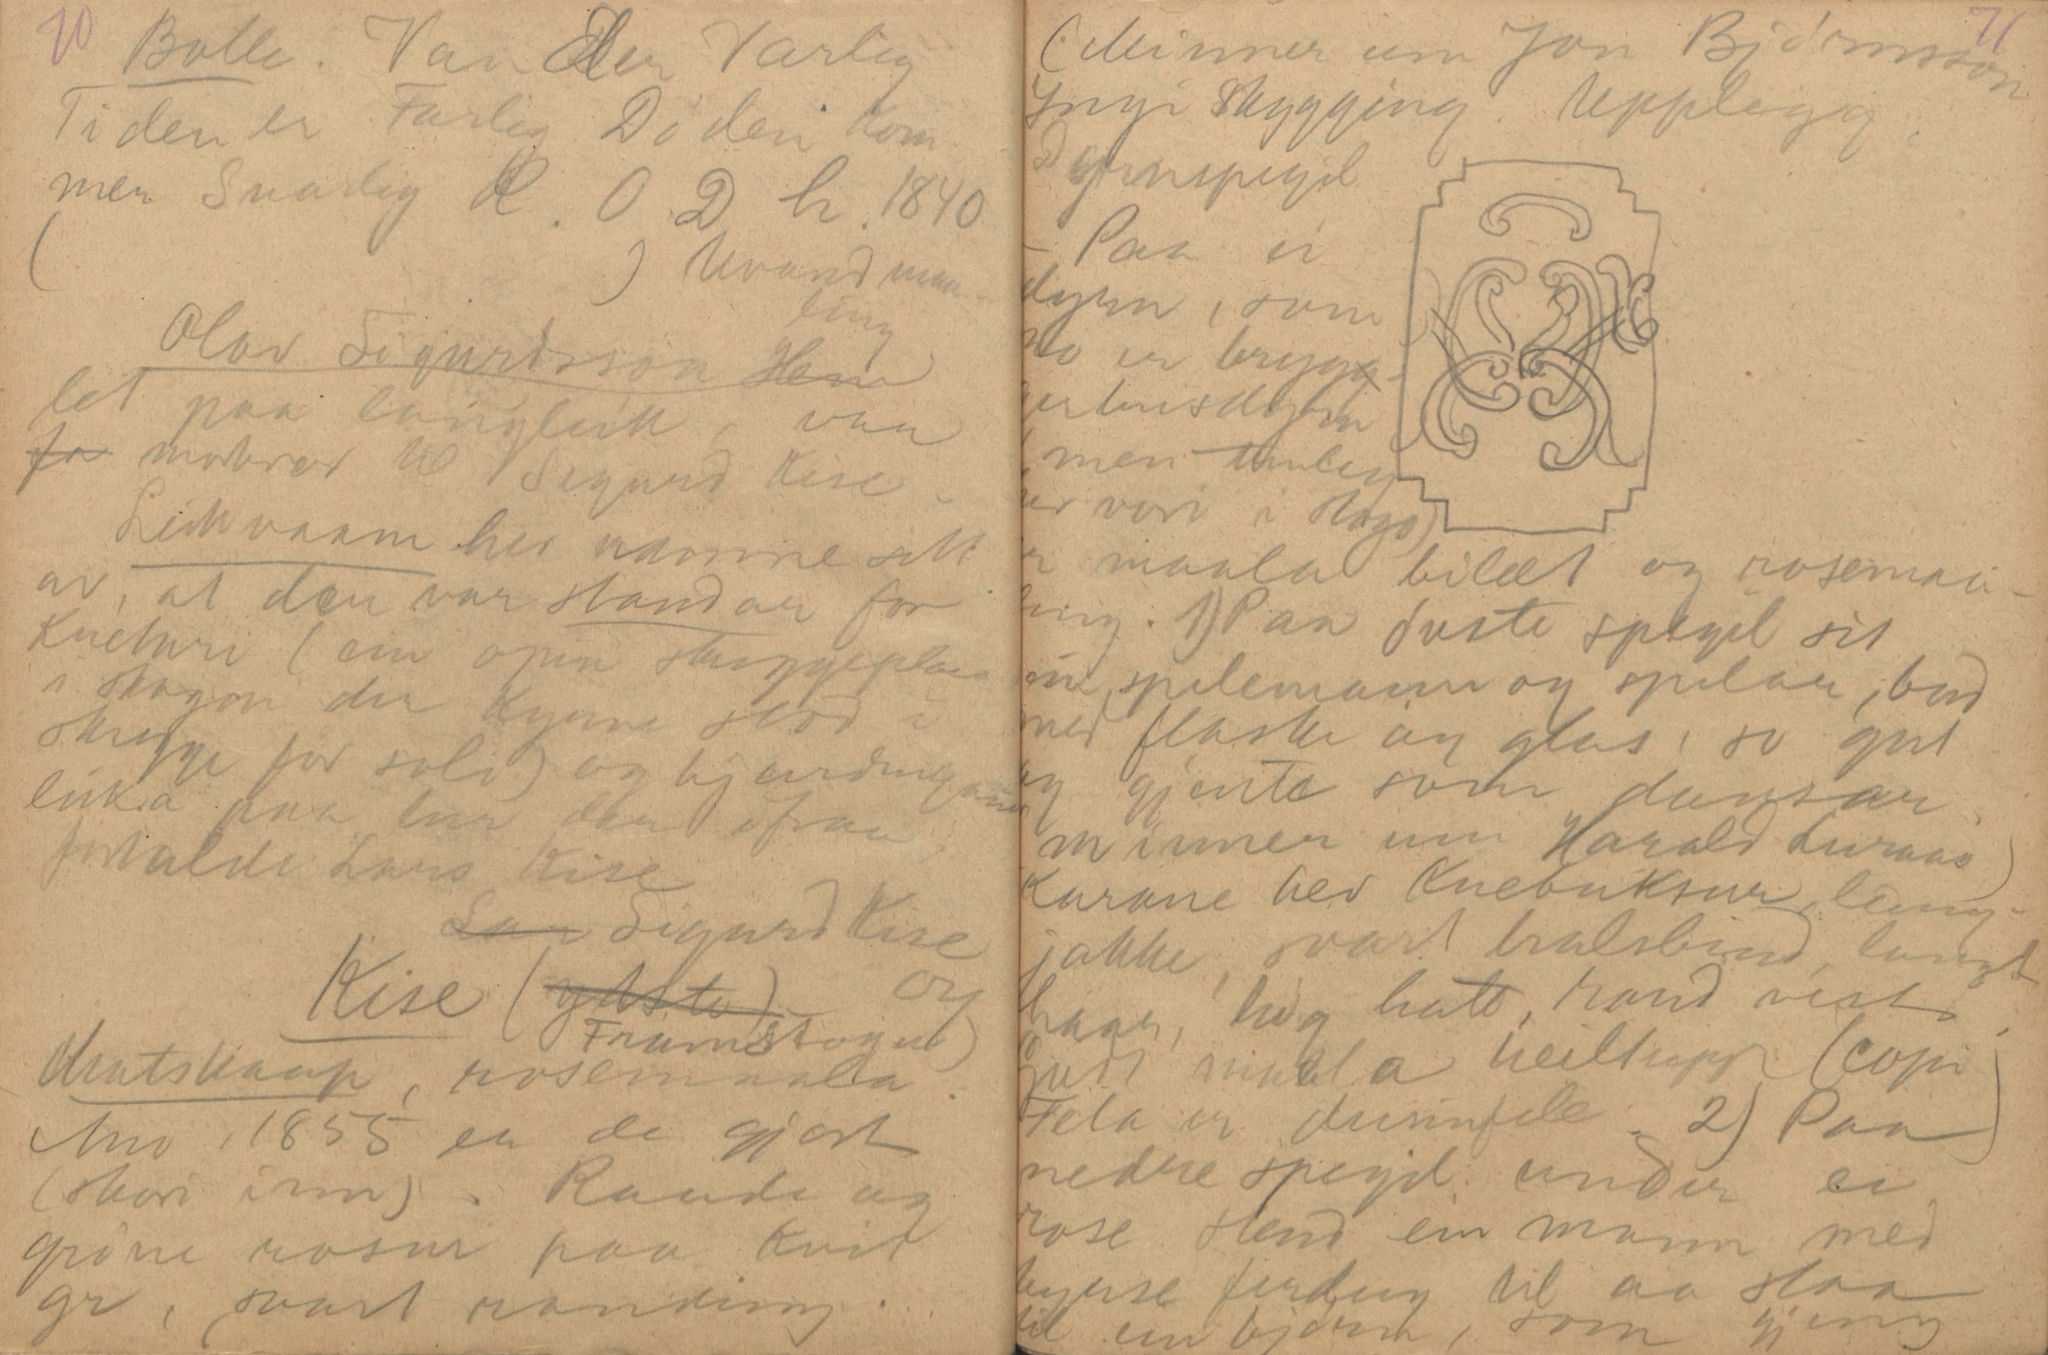 70
Bolle. Van Der Varlig
Tiden er Farlig Döden kom
mer Snarlig R. O. D h. 1840
( ) Uvand maa-
ling
Olav Sigurdsson Hem
let paa langleik, var
fa morbror til Sigurd Kise.
Leikvaam hev namne sitt
av, at den var standar for
Kuelure (ein open skuggeplass
i skogen der kyrne stod i
skugge for soli) og hjuringane
leika paa lur der ifraa,
fortalde Lars Kise
Lar Sigurd Kise
Kise (ydste) og
Framistogut)
Matskaap, rosemaala.
Ano, 1855 er de gjort
(skori inn). Raude og
gröne rosur paa kvit
gr, svart randing.
71
(Minner um Jon Björnsson
Yngi Skygging. Upplegg.
Dyrnspegil
Paa ei
dyrn, som
no er brygg-
gerhusdyrn
(men truleg
hev vori i stogo)
er maala bilæt og rosemaa-
ling. 1) Paa övste spegil sit
ein spelemann og spelar, bord
med flaske og glas, so gut
og gjente som dansar.
(minner um Harald Luraas)
Karane hev Knebuksur, long-
jakke, svart halsbind, langt
haar, hög hatt, rand vest,
godt maala heiltupp (copi)
Fela er dusinfele. 2) Paa
nedre spegil under ei
rose stend ein mann med
byrse ferdug til aa slaa
til ein björn, som gjeng